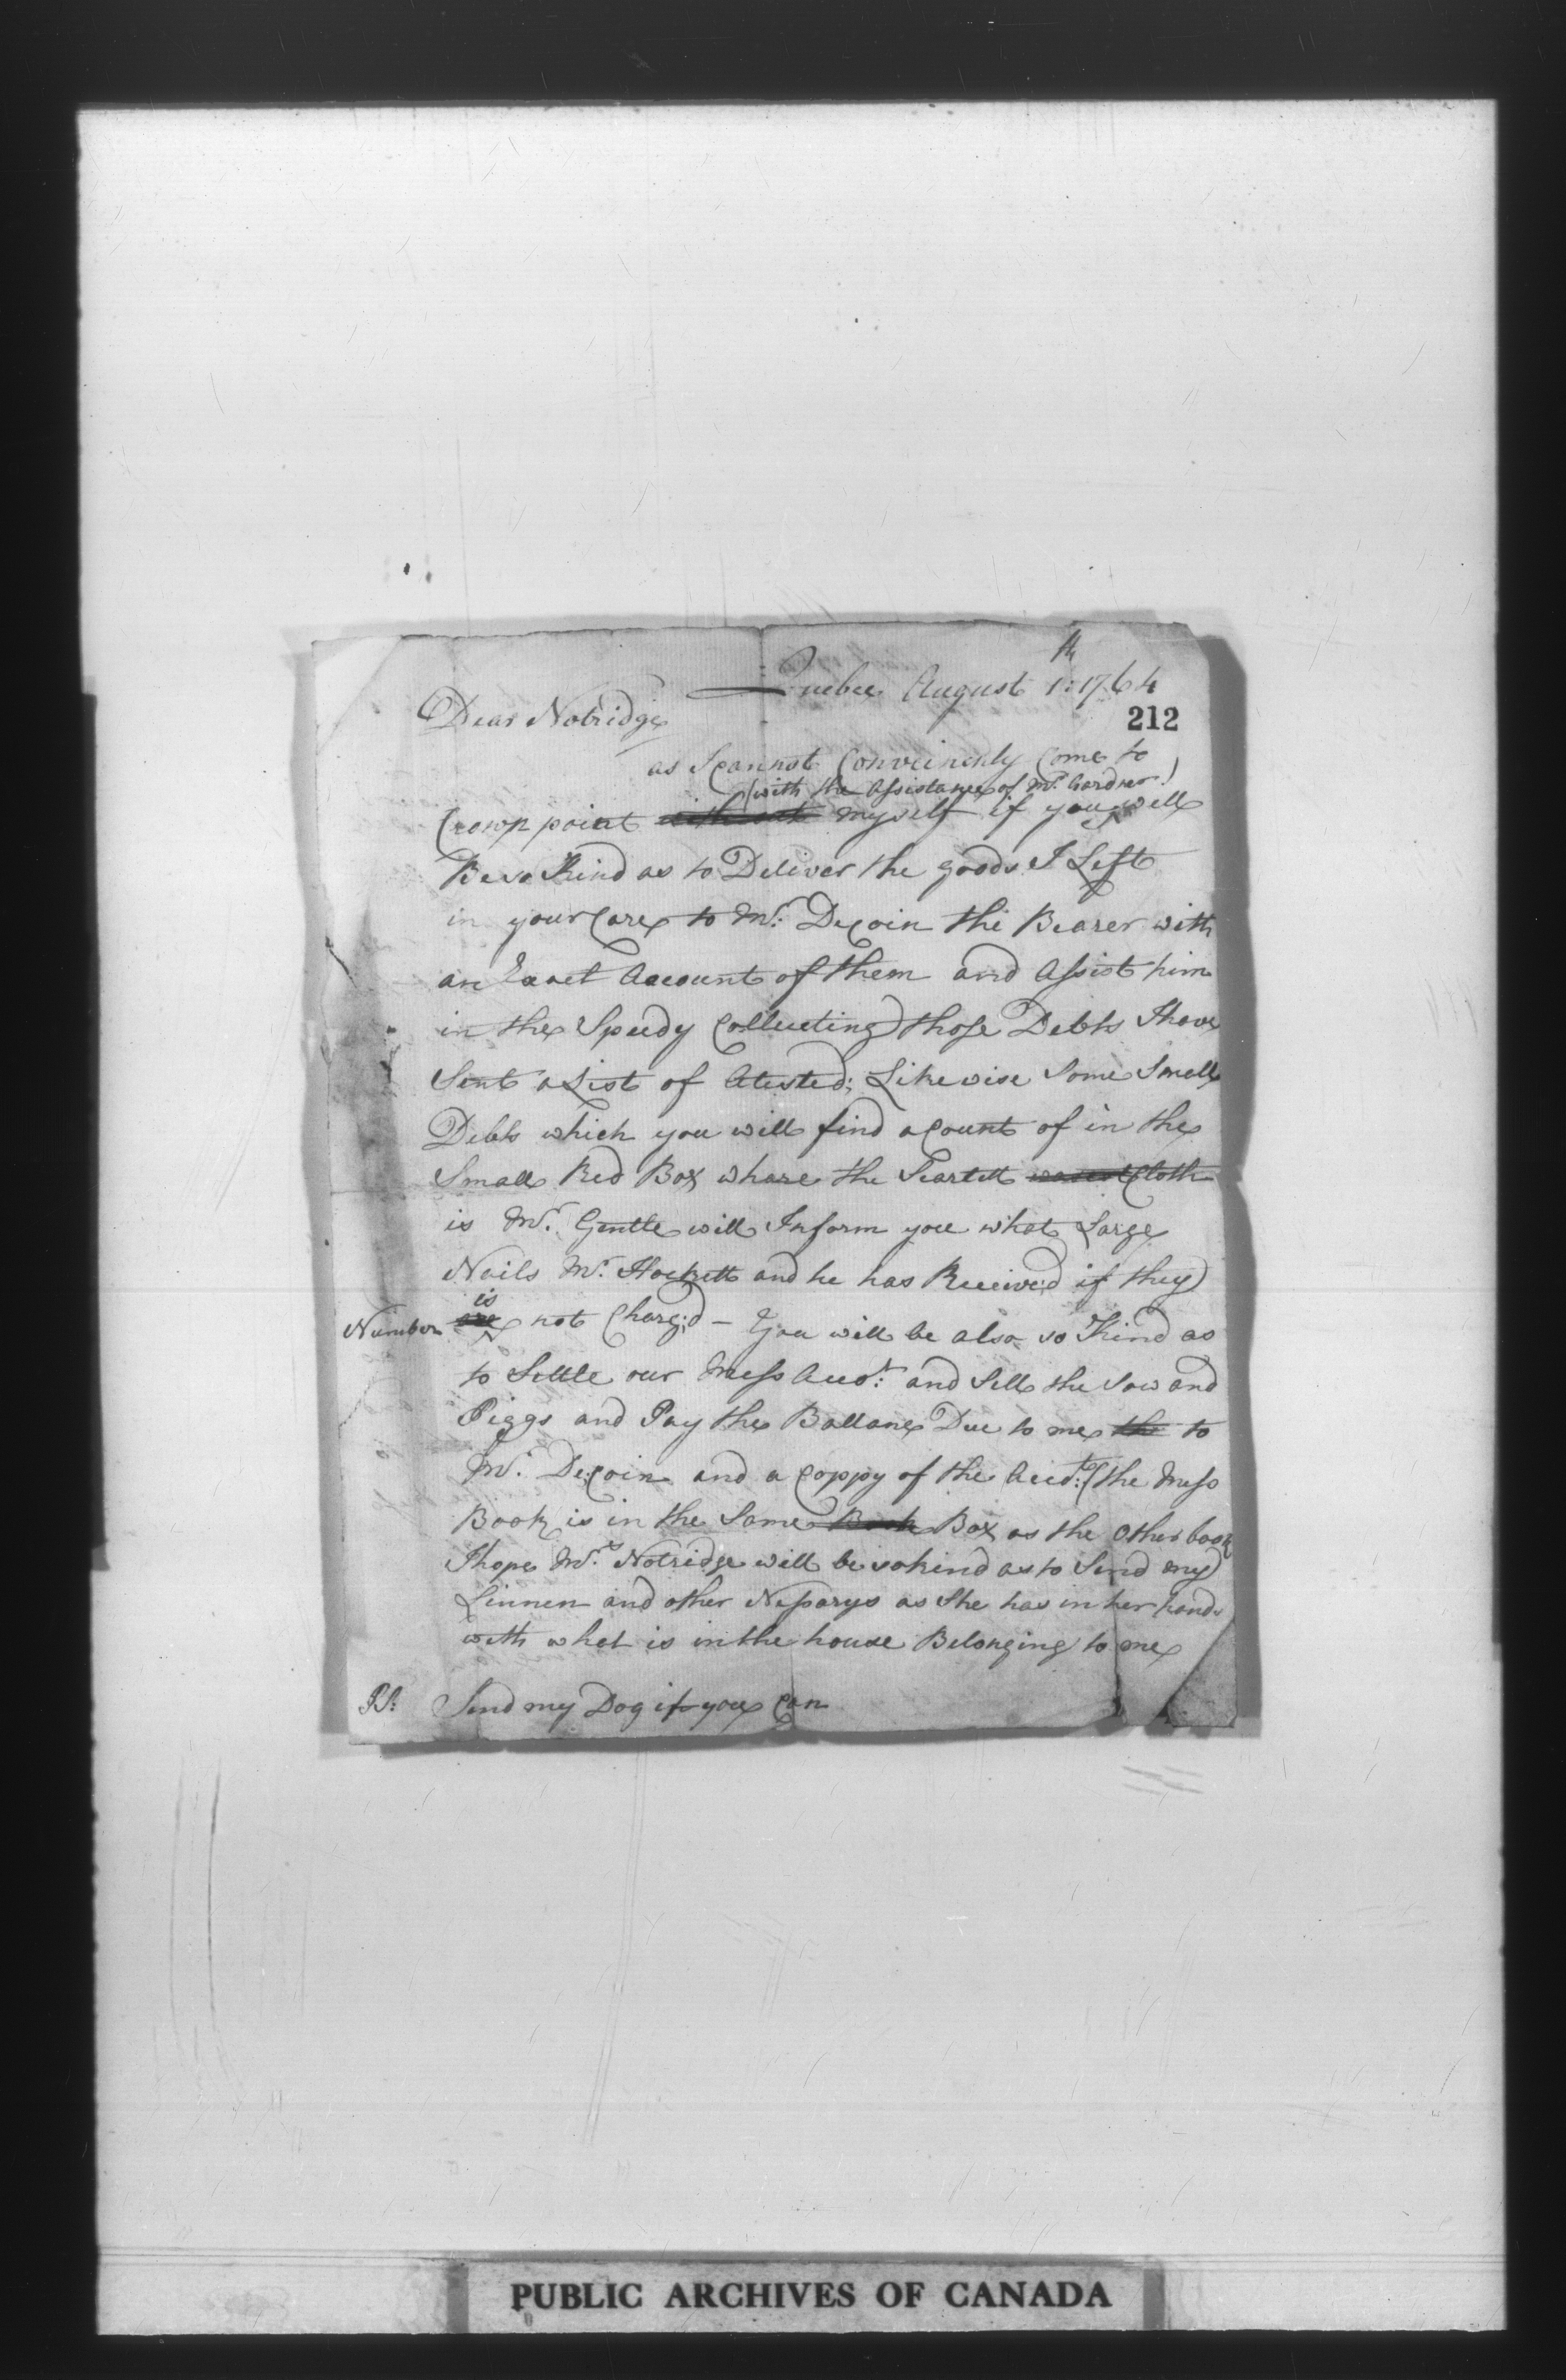 Quebec August 1th: 1764
212
Dear Notridge
as I cannot Conveinenly Come to
(with the Assistance of Mr. Gardner)
Crown point myself if you will
Be so Kind as to Deliver the goods I Left
in your Care to Mr: Decoin the Bearer with
an Exact Account of them and Assist him
in the Speedy Collecting those Debts I have
Sent a List of Atested; Likewise Some Small
Debts which you will find acount of in the
Small Red Box whare the Scarlett Cloth
is Mr. Gentle will Inform you what Large
Nails Mr. Hockett and he has Receive'd if they
Number is not Charg;d - You will be also so Kind as
to Settle our Mess Acco:t and Sell the Sow and
Piggs and Pay the Ballance Due to me the to
Mr. Decoin and a Coppy of the Acco:ts (the Mess
Book is in the Same Book Box as the Other book
I hope Mrs. Notridge will be so kind as to Send my
Linnen and other Nesarys as She has in her hands
with what is in the house Belonging to me
PS: Send my Dog if you Can
PUBLIC ARCHIVES OF CANADA